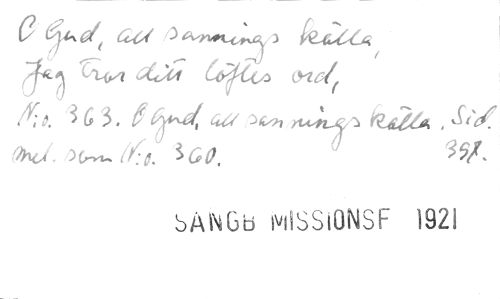 O Gud, all sannings källa,
Jag tror ditt löftes ord,
N:o. 363. O Gud, all sannings källa. Sid.
mel. som N:o. 360. 391.
SÅNGB MISSIONSF 1921